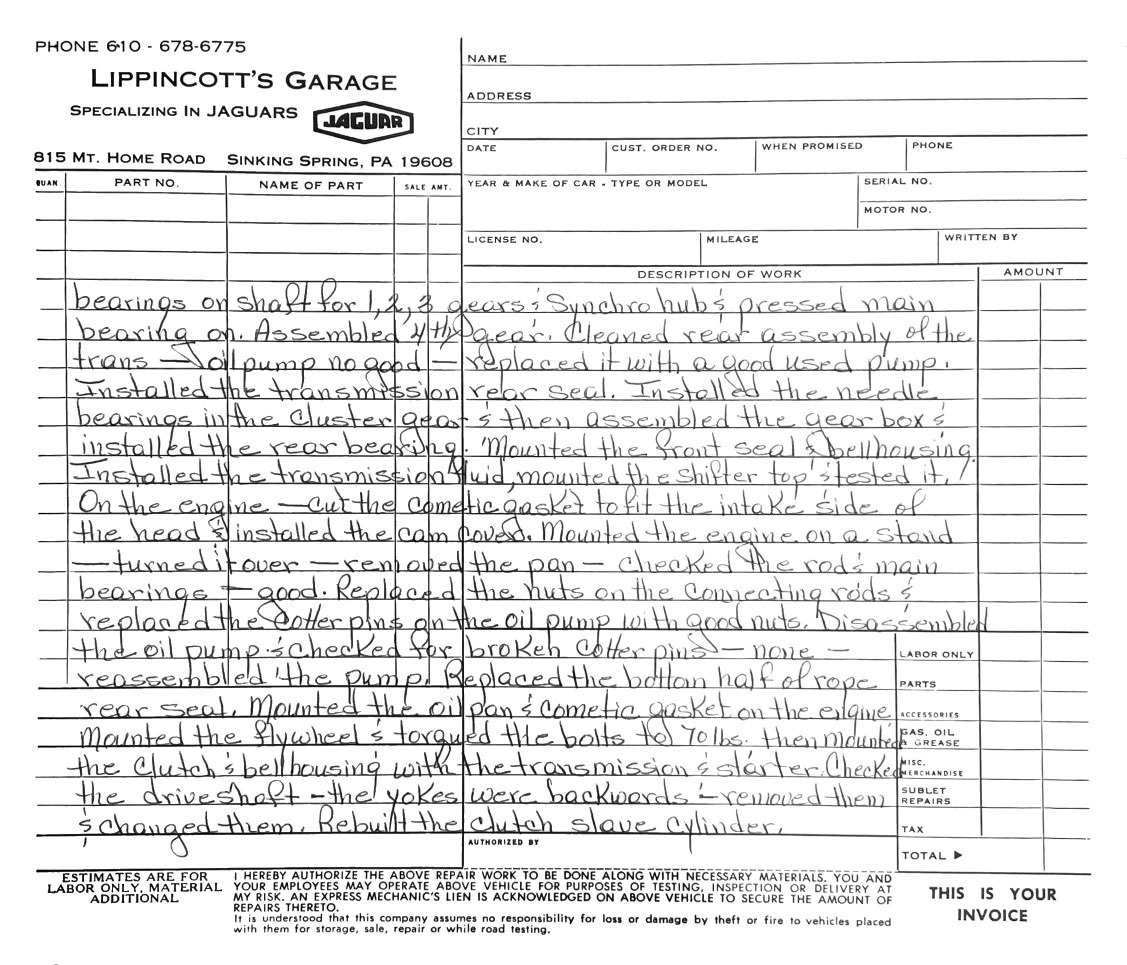 PHONE 610 - 678-6775
LIPPINCOTT'S GARAGE
SPECIALIZING IN JAGUARS
JAGUAR
815 MT. HOME ROAD SINKING SPRING, PA 19608
NAME
ADDRESS
CITY
DATE CUST. ORDER NO. WHEN PROMISED PHONE
QUAN. PART NO. NAME OF PART SALE AMT.
YEAR & MAKE OF CAR - TYPE OR MODEL SERIAL NO.
MOTOR NO.
LICENSE NO. MILEAGE WRITTEN BY
DESCRIPTION OF WORK AMOUNT
bearings on shaft for 1, 2, 3 gears & Synchro hub & pressed main
bearing on. Assembled 4th gear. Cleaned rear assembly of the
trans — oil pump no good — replaced it with a good used pump.
Installed the transmission rear seal. Installed the needle
bearings in the Cluster gear & then assembled the gear box &
installed the rear bearing. Mounted the front seal & bellhousing.
Installed the transmission fluid, mounted the shifter top & tested it.
On the engine — cut the cometic gasket to fit the intake side of
the head & installed the cam covers. Mounted the engine on a stand
— turned it over — removed the pan — checked the rod & main
bearings — good. Replaced the nuts on the connecting rods &
replaced the cotter pins on the oil pump with good nuts. Disassembled
the oil pump & checked for broken cotter pins — none —
reassembled the pump. Replaced the bottom half of rope
rear seal. Mounted the oil pan & cometic gasket on the engine
Mounted the flywheel & torqued the bolts to 70 lbs. then mounted
the clutch & bellhousing with the transmission & starter. Checked
the driveshaft - the yokes were backwords - removed them
& changed them. Rebuilt the clutch slave cylinder.
LABOR ONLY
PARTS
ACCESSORIES
GAS, OIL
& GREASE
MISC.
MERCHANDISE
SUBLET
REPAIRS
TAX
AUTHORIZED BY
TOTAL ▶
ESTIMATES ARE FOR
LABOR ONLY, MATERIAL
ADDITIONAL
I HEREBY AUTHORIZE THE ABOVE REPAIR WORK TO BE DONE ALONG WITH NECESSARY MATERIALS. YOU AND
YOUR EMPLOYEES MAY OPERATE ABOVE VEHICLE FOR PURPOSES OF TESTING, INSPECTION OR DELIVERY AT
MY RISK. AN EXPRESS MECHANIC'S LIEN IS ACKNOWLEDGED ON ABOVE VEHICLE TO SECURE THE AMOUNT OF
REPAIRS THERETO.
It is understood that this company assumes no responsibility for loss or damage by theft or fire to vehicles placed
with them for storage, sale, repair or while road testing.
THIS IS YOUR
INVOICE